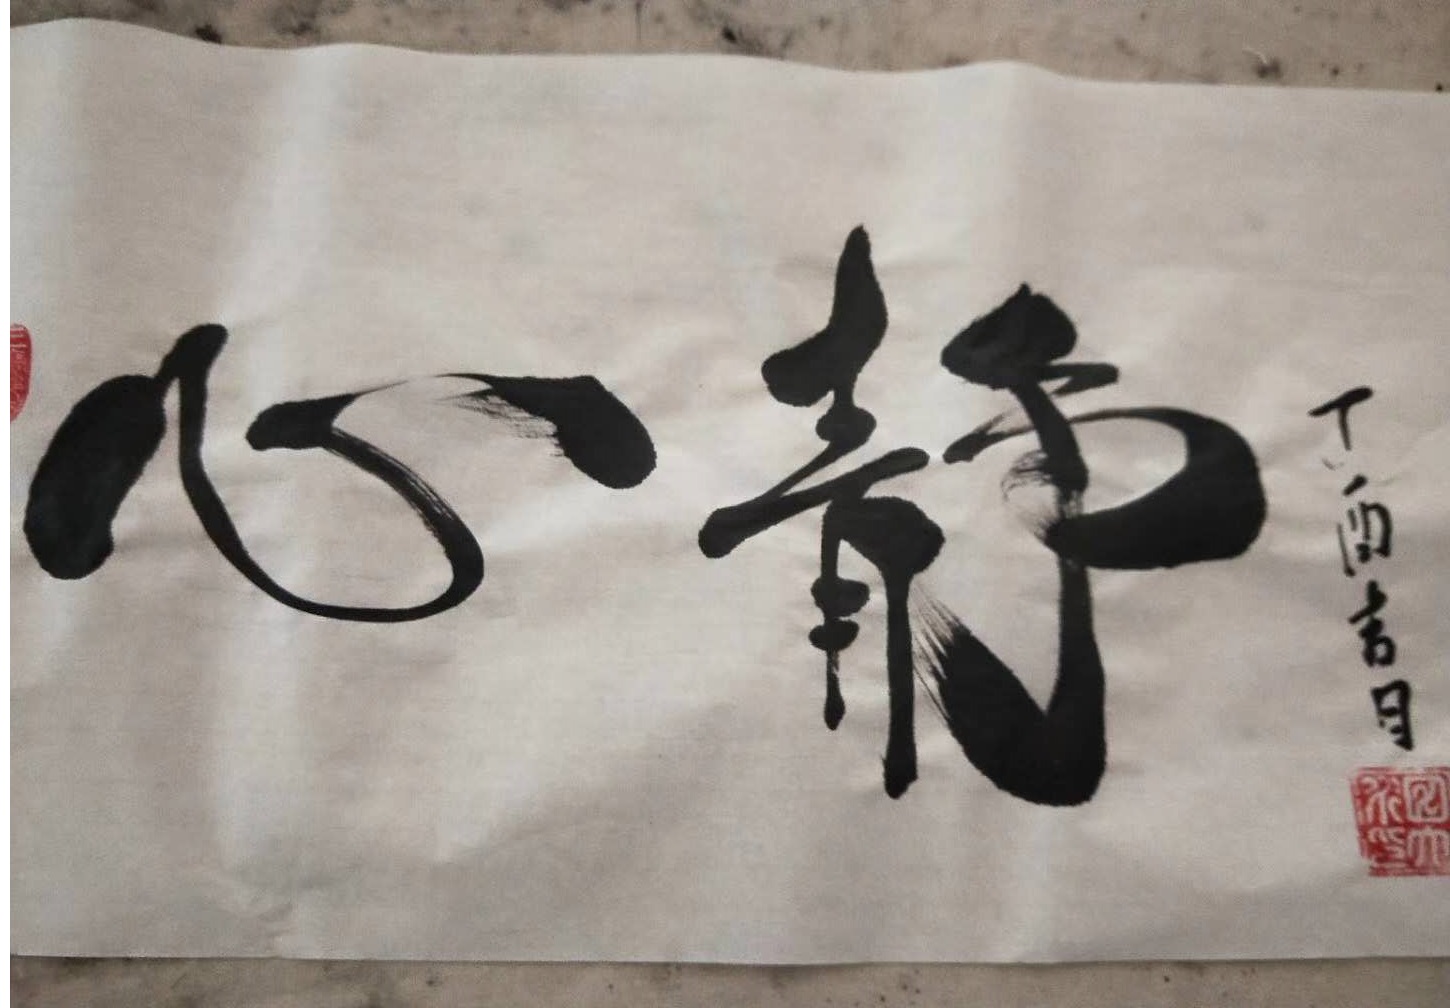 心静
丁酉吉日